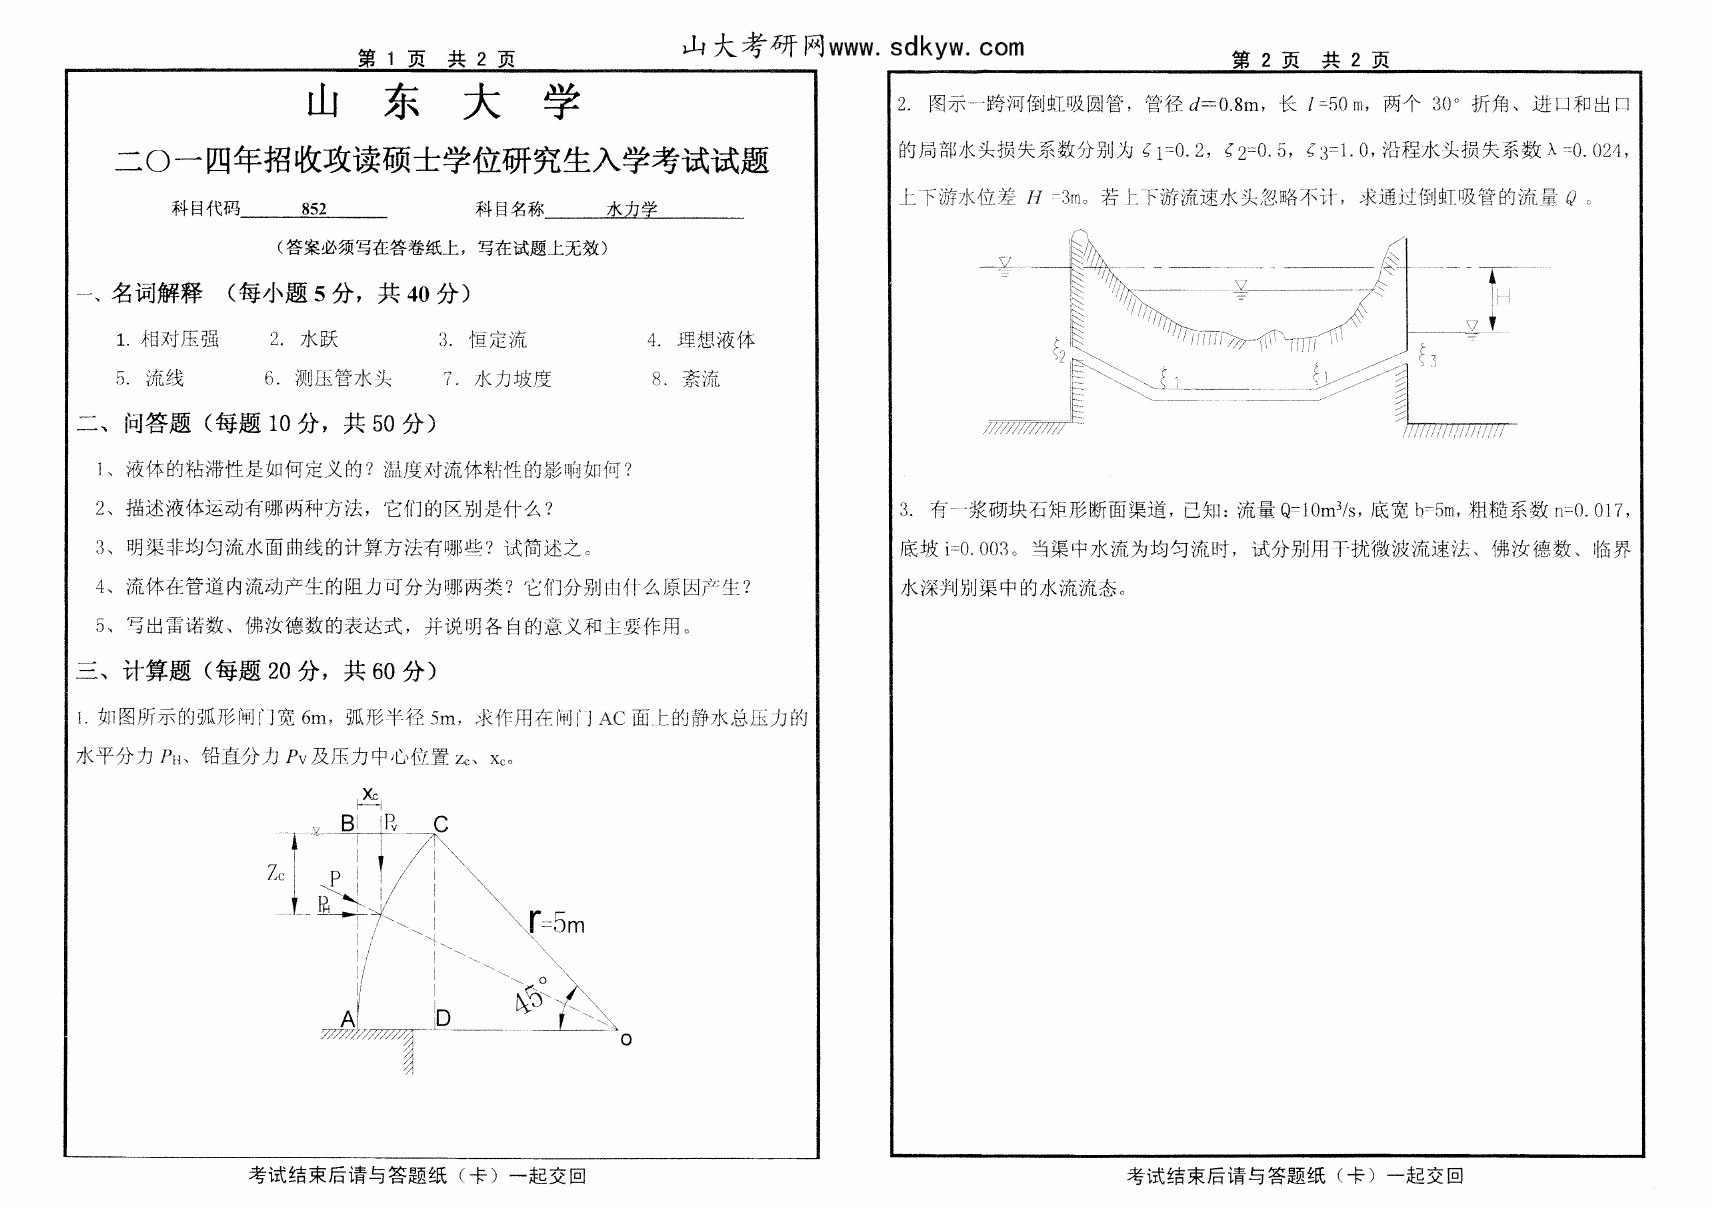 山大考研网www.sdkyw.com
第 1 页 共 2 页
山 东 大 学
二〇一四年招收攻读硕士学位研究生入学考试试题
科目代码 852 科目名称 水力学
（答案必须写在答卷纸上，写在试题上无效）
一、名词解释 （每小题 5 分，共 40 分）
1. 相对压强 2. 水跃 3. 恒定流 4. 理想液体
5. 流线 6. 测压管水头 7. 水力坡度 8. 紊流
二、问答题（每题 10 分，共 50 分）
1、液体的粘滞性是如何定义的？温度对流体粘性的影响如何？
2、描述液体运动有哪两种方法，它们的区别是什么？
3、明渠非均匀流水面曲线的计算方法有哪些？试简述之。
4、流体在管道内流动产生的阻力可分为哪两类？它们分别由什么原因产生？
5、写出雷诺数、佛汝德数的表达式，并说明各自的意义和主要作用。
三、计算题（每题 20 分，共 60 分）
1. 如图所示的弧形闸门宽 6m，弧形半径 5m，求作用在闸门 AC 面上的静水总压力的
水平分力 PH、铅直分力 PV 及压力中心位置 zc、xc。
xc
B Pv C
Zc
P
PH
r=5m
45°
A D
O
考试结束后请与答题纸（卡）一起交回
第 2 页 共 2 页
2. 图示一跨河倒虹吸圆管，管径 d=0.8m，长 l=50 m，两个 30° 折角、进口和出口
的局部水头损失系数分别为 ζ1=0.2，ζ2=0.5，ζ3=1.0，沿程水头损失系数 λ=0.024，
上下游水位差 H =3m。若上下游流速水头忽略不计，求通过倒虹吸管的流量 Q 。
H
ξ2 ξ1 ξ1 ξ3
3. 有一浆砌块石矩形断面渠道，已知：流量 Q=10m³/s，底宽 b=5m，粗糙系数 n=0.017，
底坡 i=0.003。当渠中水流为均匀流时，试分别用干扰微波流速法、佛汝德数、临界
水深判别渠中的水流流态。
考试结束后请与答题纸（卡）一起交回